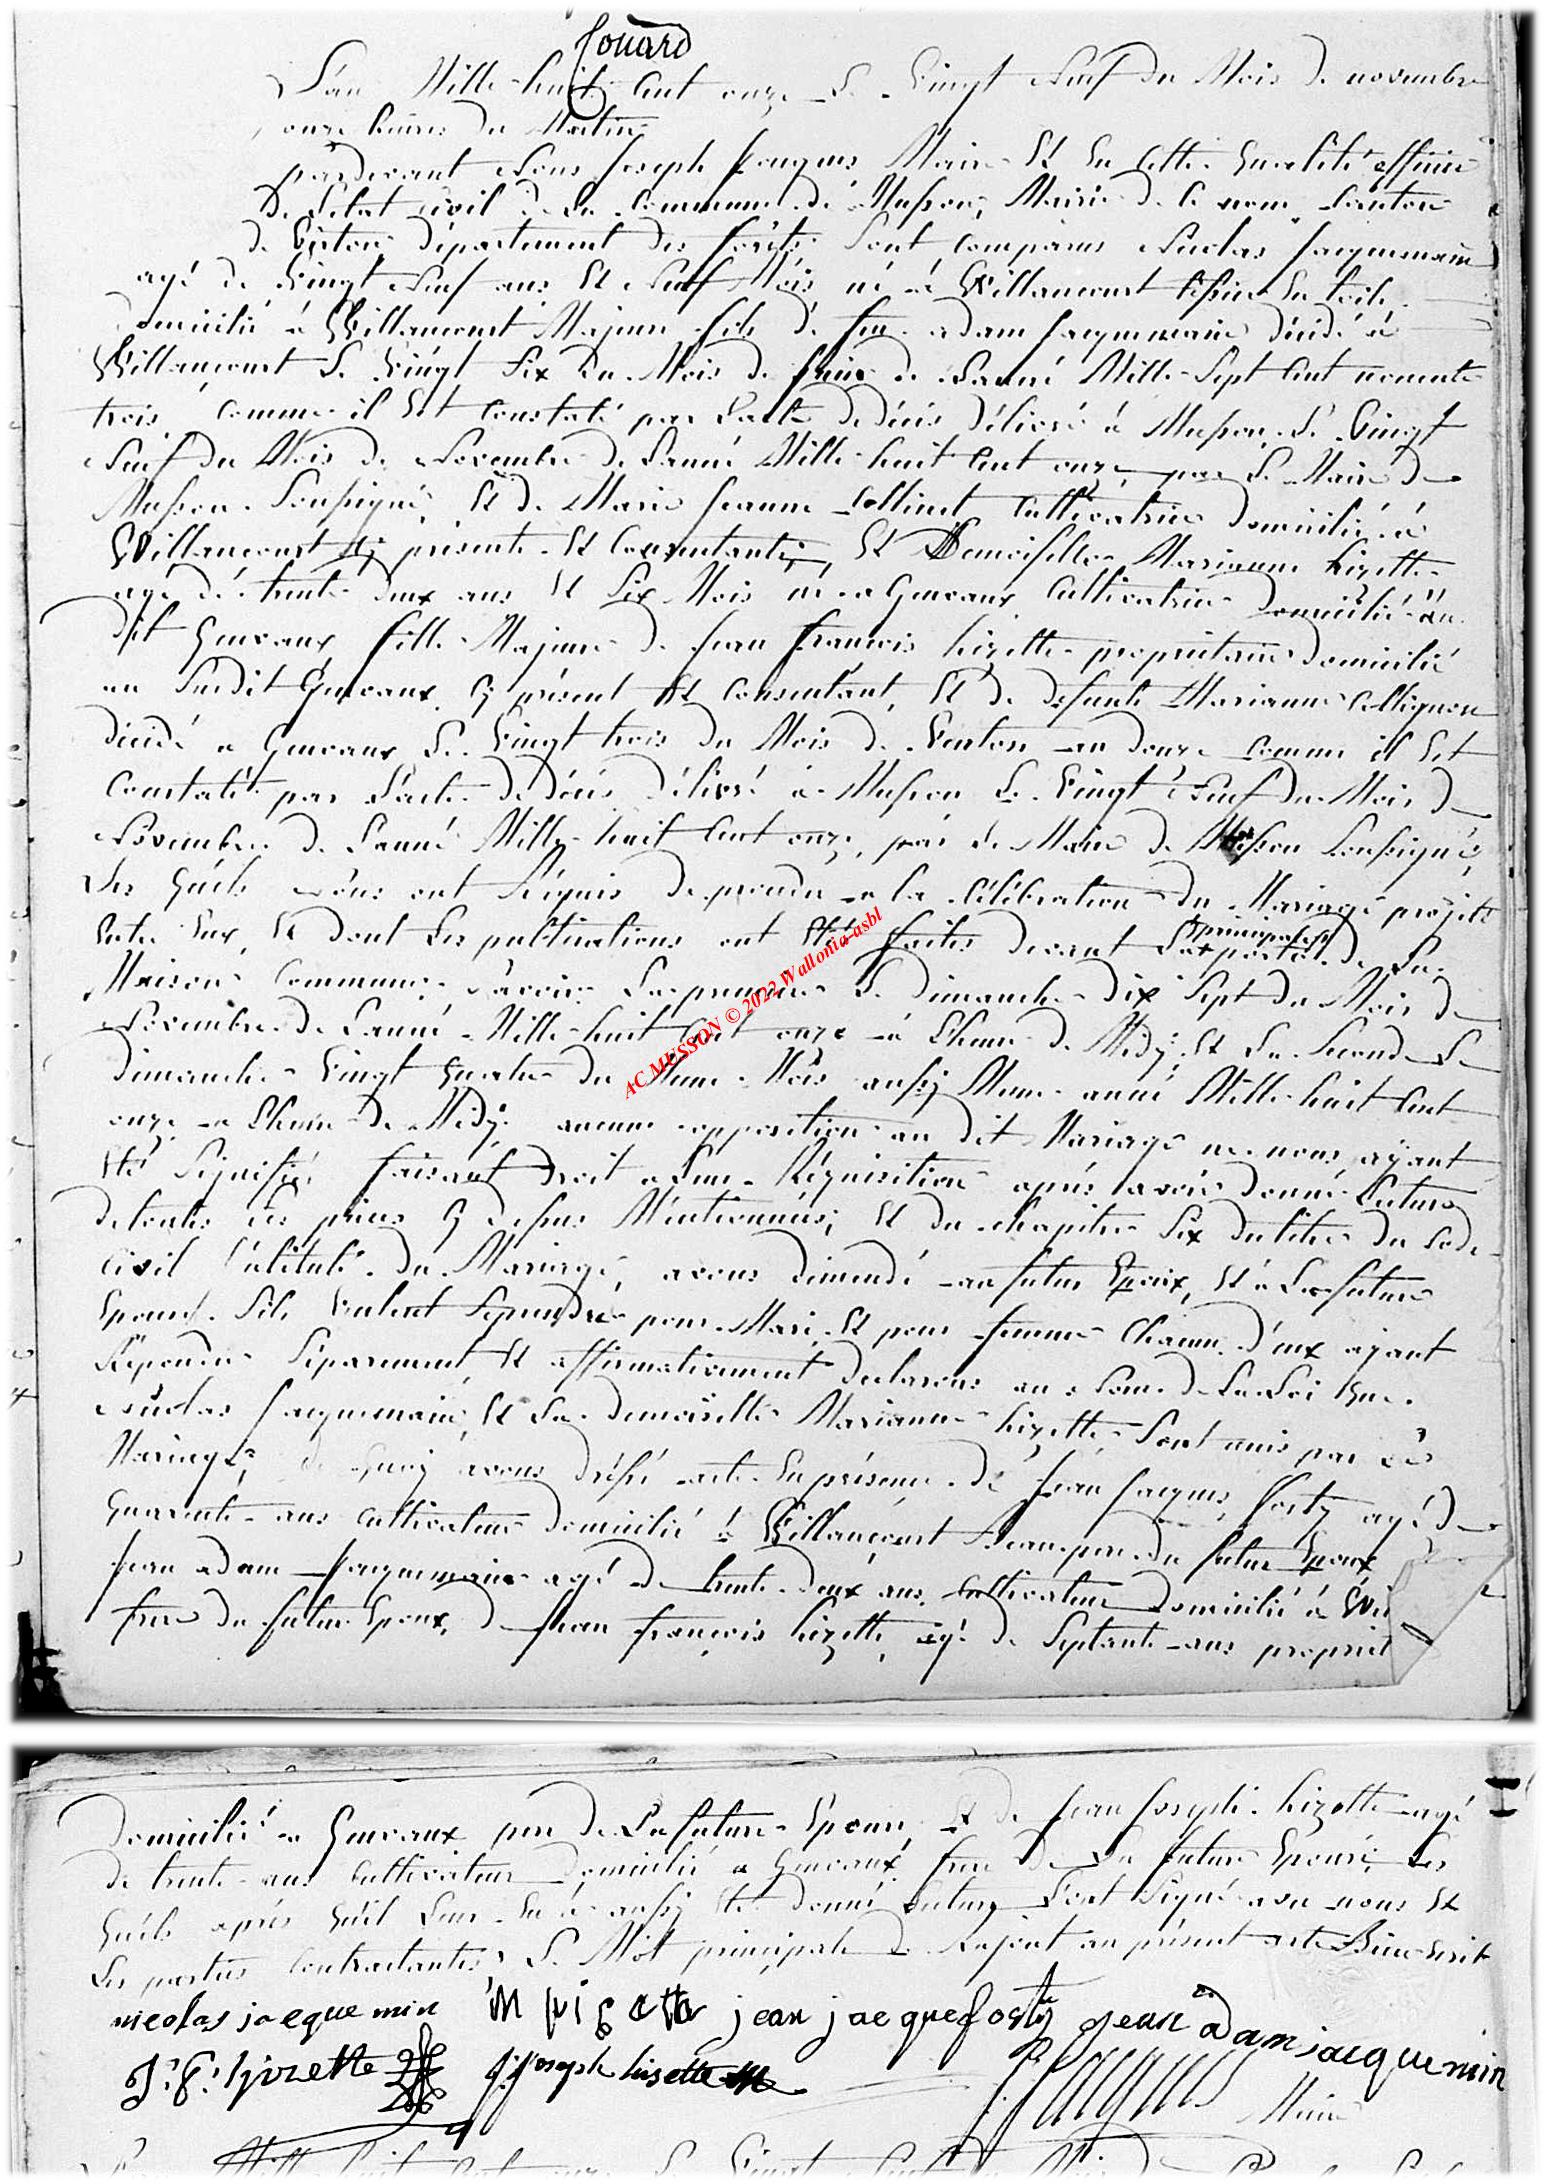 fouard
L'an Mille huit Cent onze Le Vingt Neuf du Mois de novembre
onze heures du Matin
pardevant Nous Joseph Jacques Maire Et En Cette qualité officier
De L'etat civil de La Commune de Musson, Mairie de Ce nom Canton
de Virton, département des forêts, Sont Comparus Nicolas Jacquemain
agé de Vingt Neuf ans Et Neuf Mois né à Willancourt En toile
domicilié à Willancourt Majeur fils de feu adam Jacquemain décédé à
Willancourt Le Vingt Six du Mois de de L'anné Mille Sept Cent nonente
trois Comme il Est Constaté par L'acte de décés délivré à Musson Le Vingt
Neuf du Mois de Novembre de L'anné Mille huit Cent onze par Le Maire de
Musson Soussigné, Et de Marie Jeanne Collinet Cultivatrice domiciliée à
Willancourt Cy présente Et Consentante, Et Demoiselle Marianne hizette
agé de trente deux ans Et Six Mois né a Gevraux Cultivatrice domicilié au
dit Gevraux fille Majeure de Jean françois hizette propriétaire domicilié
au Susdit Gevraux Cy présent Et Consentant, Et de defunte Marianne Collignon
décédé a Gevraux Le Vingt trois du Mois de Ventose an douze Comme il Est
Constaté par L'acte de décés délivré à Musson Le Vingt Neuf du Mois de
Novembre de L'anné Mille huit Cent onze, par Le Maire de Musson Soussigné,
Les quels Nous ont Requis de procéder a la Célébration du Mariage projeté
Entre Eux, Et dont Les publications ont Eté faites devant La porte principale de La
Maison Commune, Savoir La premiere Le dimanche dix Sept du Mois de
Novembre de L'anné Mille huit Cent onze à L'heure de Midy, Et La Seconde Le
dimanche Vingt quatre du Meme Mois aussy Meme anné Mille huit Cent
onze a L'heure de Midy aucune opposition au dit Mariage ne nous ayant
Eté Signifié, faisant droit a Leur Réquisition après avoir donné Lecture
de toutes Les pieces Cy dessus Mentionnées, Et du chapitre Six du titre du Code
Civil intitulé du Mariage, avons demandé au futur Epoux, Et à La future
Epouse S'ils Veulent Se prendre pour Mari Et pour femme Chacun d'eux ayant
Répondu Séparement Et affirmativement declarons au Nom de La Loi que
Nicolas Jacquemain, Et La demoiselle Marianne hizette Sont unis par Le
Mariage, de quoy avons dréssé acte En présence de Jean Jacques forty agé de
quarente ans Cultivateur domicilié à Willancourt beau pere du futur Epoux
Jean adam Jacquemain agé de trente deux ans, Cultivateur domicilié à Wil
frere du futur Epoux, de Jean françois hizette, agé de Septante ans propriet
domicilié a Gevraux pere de La future Epouse, Et de Jean Joseph hizette agé
de trente ans Cultivateur domicilié a Gevraux frere de La future Epouse, Les
quels après qu'il Leur En a aussy Eté donné Lecture L'ont Signé avec nous Et
Les parties Contractantes, Le Mot principale Rajout au présent acte Bien Ecrit
nicolas jacquemin M hizette jean jacque forty Jean adam jacquemin
J. f. hizette J. joseph hisette J Jacques
Maire
AC MUSSON © 2022 Wallonia-asbl